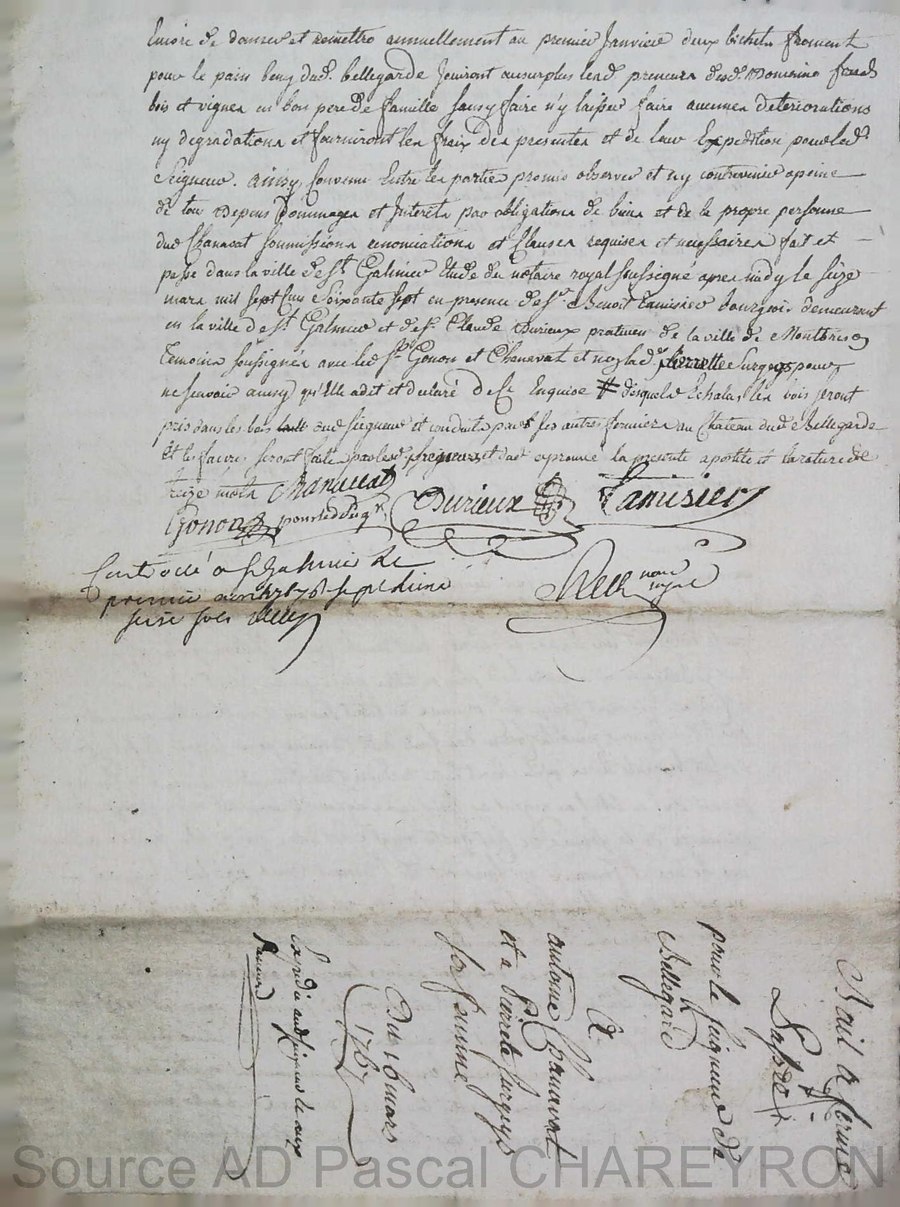 Encore de donner et remettre annuellement au premier Janvier deux bichets froment
pour le pain beny dud. bellegarde Jouiront au surplus lesd. preneurs desd. Domaine fonds
bois et vignes en bon pere de famille sans y faire n'y laisser faire aucunes deteriorations
ny degradations et fourniront les fraix des presentes et de leur Expedition pour led.
Seigneur. ainsy Convenu Entre les parties promis observer et n'y contrevenir a peine
de tous Depens Dommages et Interets par obligations de biens et de la propre personne
dud Chanavat soumissions renonciations et Clauses requises et necessaires fait et
passé dans la ville de St. Galmier Etude du notaire royal soussigné apres midy le seize
mars mil sept Cens Soixante Sept en presence de Sr. Benoit Tamisier bourgeois demeurant
en la ville de St. Galmier et de Sr. Claude Durieux praticien de la ville de Montbrison
Temoins soussignés avec led. Sr. Gonon et Chanavat et non lad. pierrette Surgeys pour
ne savoir ainsy qu'Elle a dit et declaré de ce Enquise # desquels Echalas les bois seront
pris dans les bois dud seigneur et conduits par ses autres fermiers au Chateau dud Bellegarde
et les faires seront faite par lesd. preneurs et aprouvé la presente apostile et la rature de
treize mots Chanavat Durieux Tamisier
Gonon pour led Seigr.
not.re royal
Controllé a St Galmier le
premier avril 1767 sept
seize sols
Bail a ferme
pour le seigneur de
Bellegarde
A
antoine Chanavat
et a Pierrette Surgeys
sa femme
Du 16 mars
1767
Expedié aud seigneur le
Source AD Pascal CHAREYRON